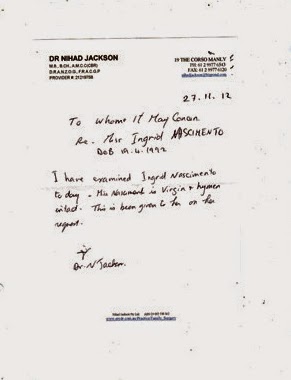 DR NIHAD JACKSON
M.B., B.CH., A.M.C.C(CBR)
D.R.A.N.Z.O.G., F.R.A.C.G.P
19 THE CORSO MANLY
PH: 61 2 9977 6543
27.11.12
To whome It May Concern
Re. Miss Ingrid NASCIMENTO
DOB 19.4.1992
I have examined Ingrid Nascimento
today - Miss Nasciment is Virgin & hymen
intact. This is been given to her on her
request.
Dr. N Jackson